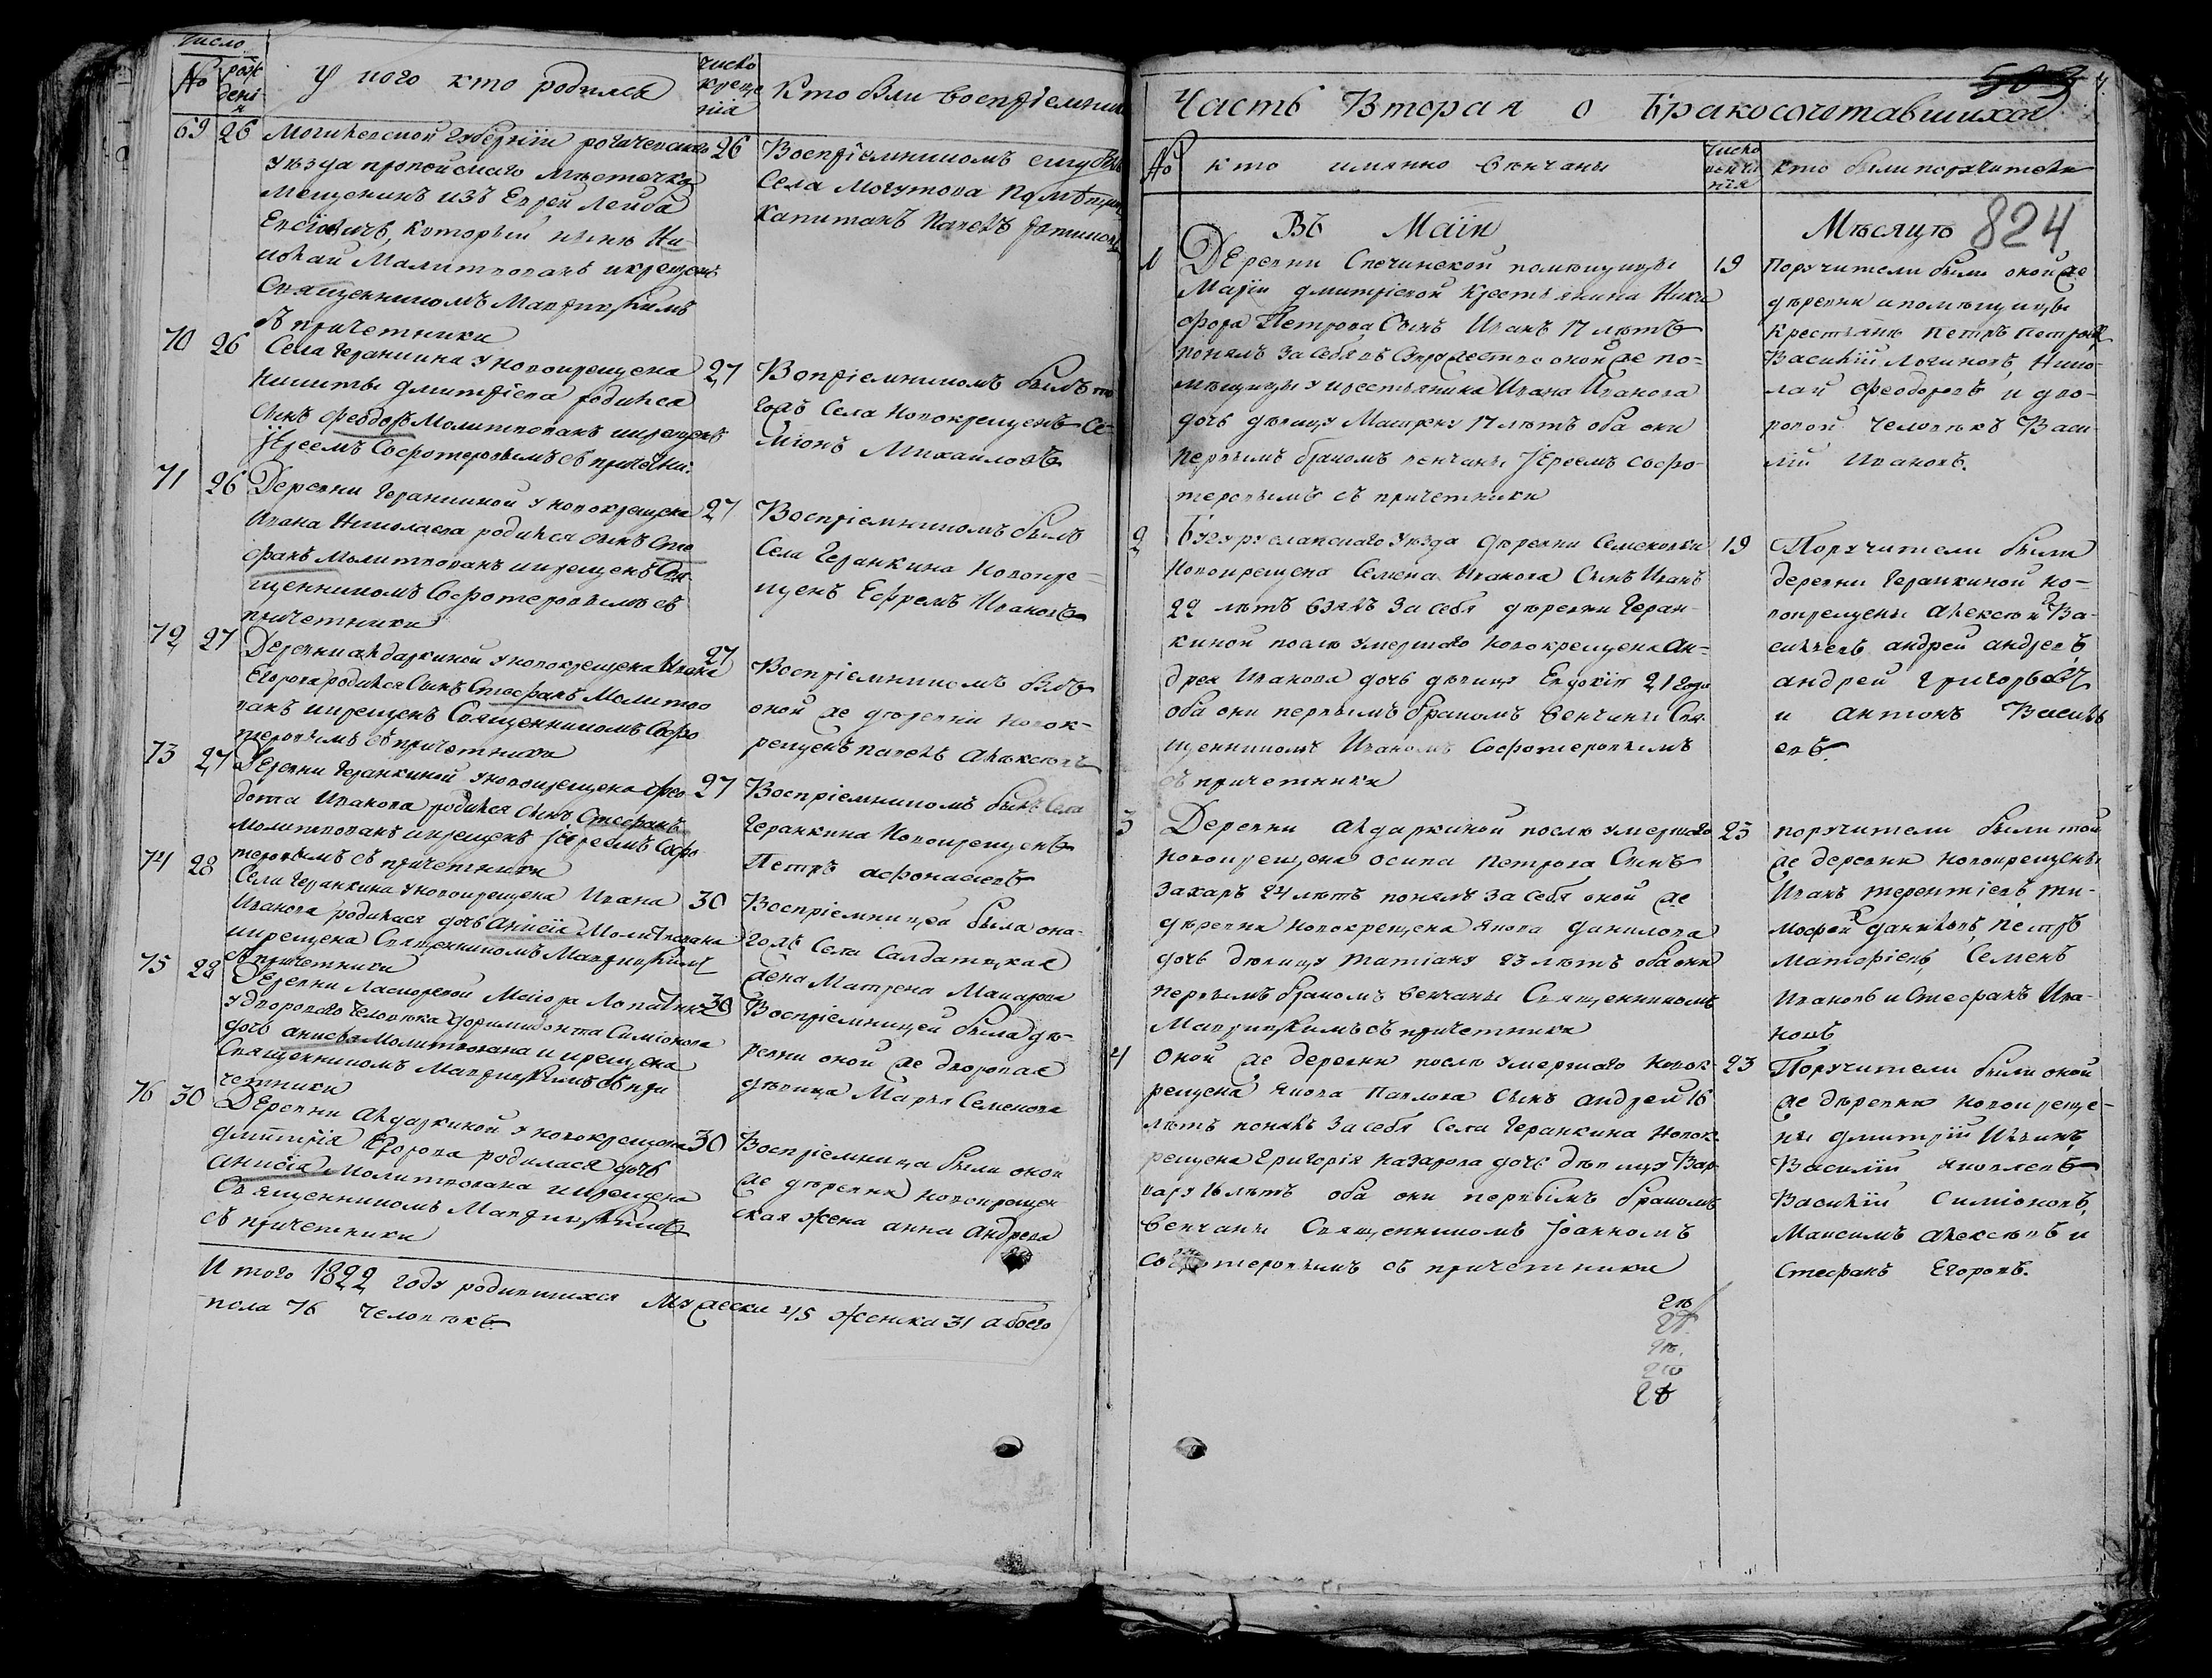 Число
№ рожденiя
У ково кто родился
число крещенiя
Кто были восприемники
69 26 Могилевской губернiи рогачевскаго 26
уѣзда пропойскаго мѣстечка
мещенинъ изъ Еврей Лейба
который нынѣ Ни-
колай Молитвованъ и крещенъ
Священникомъ
съ причетники
Воспрiемникомъ ему былъ
Села Могутова Помѣщикъ
Капитанъ Павелъ
70 26 Села Геранкина у новокрещена 27
Никиты Дмитрiева родился
сынъ Феодоръ Молитвованъ и крещенъ
Iереемъ Софотеровымъ съ причетни:
Вопрiемникомъ былъ то
гожъ Села Новокрещенъ Се-
мiонъ Михаиловъ
71 26 Деревни Геранкиной у новокрещена 27
Ивана Николаева родился сынъ Сте
фанъ Молитвованъ и крещенъ Свя
щенникомъ Софотеровымъ съ
причетники
Воспрiемникомъ былъ
Села Геранкина Новокре=
щенъ Ефремъ Ивановъ
72 27 Деревни Алдаркиной у новокрещена Ивана 27
Егорова родился Сынъ Стефанъ Молитво
ванъ и крещенъ Священникомъ Софо
теровымъ съ причетники
Воспрiемникомъ былъ
оной же деревни новок-
рещенъ Павелъ Алексѣевъ
73 27 Деревни Геранкиной у новокрещена Фео 27
дота Иванова родился Сынъ Стефанъ
Молитвованъ и крещенъ Iереемъ Софо
теровымъ съ причетники
Воспрiемникомъ былъ Села
Геранкина Новокрещенъ
Петръ Афонасьевъ
74 28 Села Геранкина у новокрещена Ивана 30
Иванова родилася дочь Анисiя Молитвована
и крещена Священникомъ
съ причетники
Воспрiемницей была она-
гожъ Села Салдатцкая
жена Матрена Макарова
75 28 Деревни Ласкаревой Маiора Лопатина 30
у двороваго человѣка Филимонта Симiонова
дочь Анисья Молитвована и крещена
Священникомъ съ при
четники
Воспрiемницей была де-
ревни оной же дворовая
дѣвица Марья Семенова
76 30 Деревни Алдаркиной у новокрещена 30
Дмитрiя Егорова родилася дочь
Анисiя Молитвована и крещена
Священникомъ
съ причетники
Воспрiемница была оной
же деревни новокрещен
ская жена Анна Андреева
Итого 1822 году родившихся Мужеска 45 Женска 31 а обоего
пола 76 человѣкъ
503
Часть Вторая о Бракосочетавшихся
№ кто имянно венчаны
Число венчанiя
кто были поручители
Въ Маiи
Мѣсяцѣ 824
1 Деревни Спечинской помѣщицы 19
Марiи Дмитрiевой Крестьянина Ники
фора Петрова Сынъ Иванъ 17 лѣтъ
понялъ за себя въ Супружество оной же по=
мѣщицы у крестьянина Ивана Иванова
дочь дѣвицу Матрену 17 лѣтъ оба они
первымъ бракомъ венчаны Iереемъ Софо-
теровымъ съ причетники
Поручители были оной же
деревни и помѣщицы
Крестьяне Петръ Петровъ
Василiй Логиновъ, Нико-
лай Феодоровъ и дво-
ровой человѣкъ Васи
лiй Ивановъ.
2 Бугурусланскаго уѣзда деревни Семеновки 19
Новокрещена Семена Иванова Сынъ Иванъ
22 лѣтъ взялъ за себя деревни Геран-
киной послѣ умершаго Новокрещена Ан-
дрея Иванова дочь дѣвицу Евдокiю 21 года
оба они первымъ бракомъ венчаны Свя
щенникомъ Иваномъ Софотеровымъ
съ причетники
Поручители были
деревни Геранкиной но-
вокрещены Алексей Ва-
сильевъ Андрей Андреевъ
Андрей Григорьевъ
и Антонъ Василь
евъ
3 Деревни Алдаркиной послѣ умершаго 23
Новокрещена Осипа Петрова Сынъ
Захаръ 24 лѣтъ понялъ за себя оной же
деревни новокрещена Якова Данилова
дочь дѣвицу Татiану 23 лѣтъ оба они
первымъ бракомъ венчаны Священникомъ
съ причетники
поручители были той
же деревни новокрещены
Иванъ Терентiевъ, Ти-
мофей Даниловъ, Петръ
Матфiевъ, Семенъ
Ивановъ и Стефанъ Ива-
новъ
4 Оной же деревни послѣ умершаго Новок- 23
рещена Якова Павлова Сынъ Андрей 16
лѣтъ понялъ за себя Села Геранкина Новок-
рещена Григорiя Назарова дочь дѣвицу Вар-
вару 16 лѣтъ оба они первымъ бракомъ
венчаны Священникомъ Iоанномъ
Софотеровымъ съ причетники
Поручители были оной
же деревни новокреще-
ны Дмитрiй Ильинъ,
Василiй Яковлевъ
Василiй Симiоновъ,
Максимъ Алексѣевъ и
Стефанъ Егоровъ.